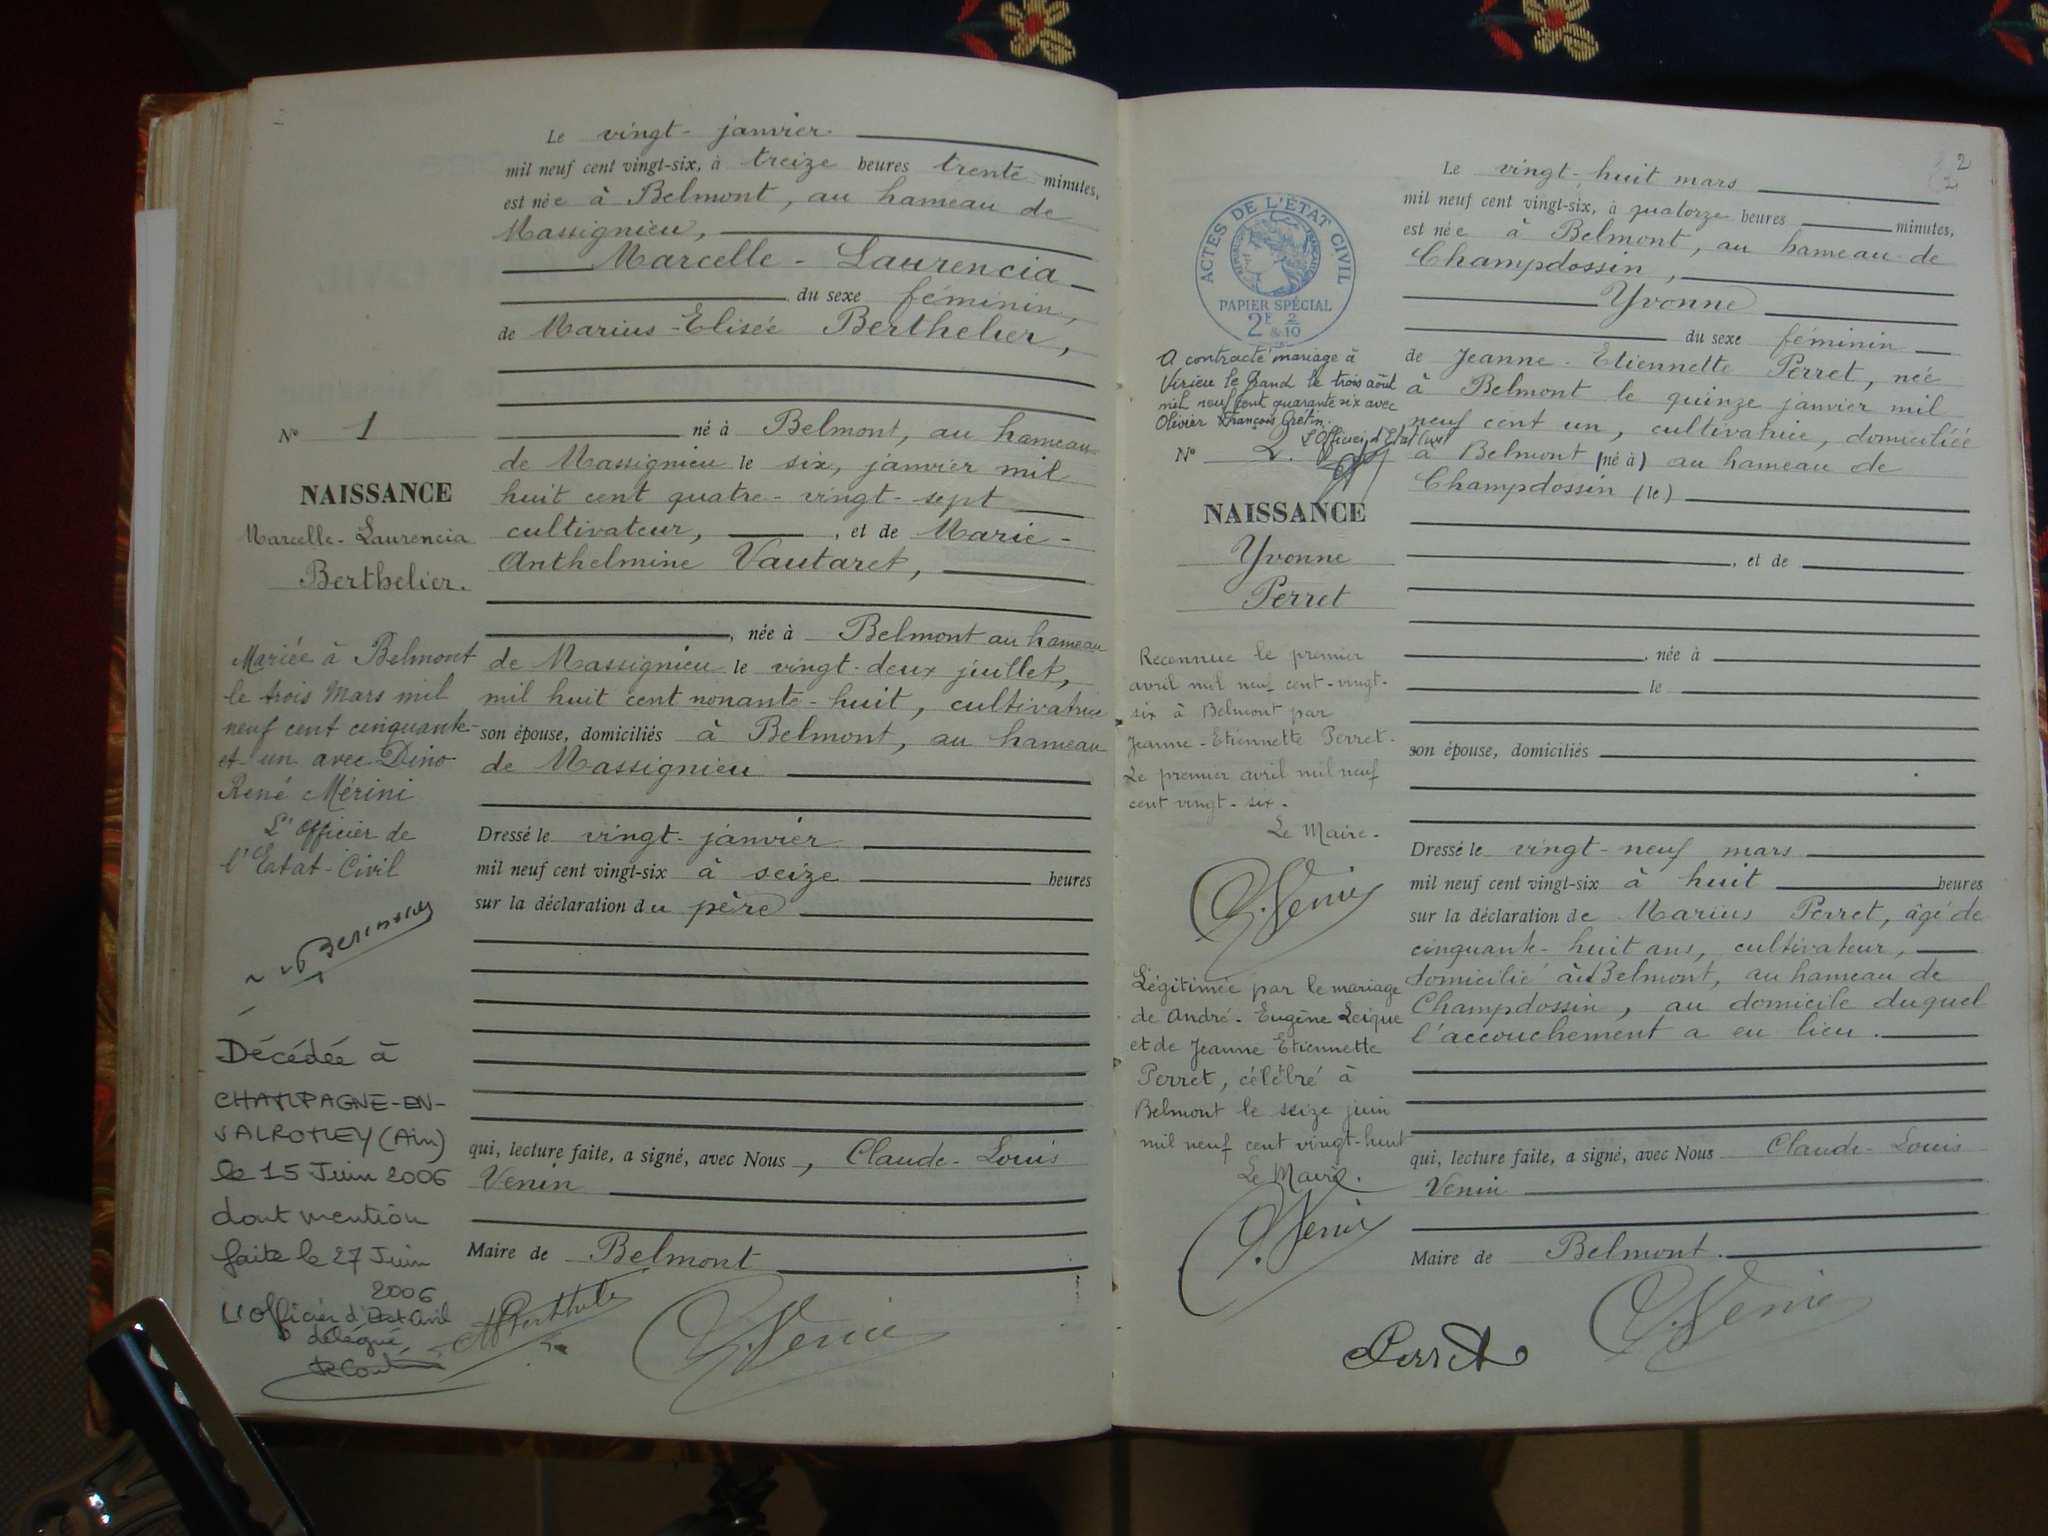 Le vingt janvier
mil neuf cent vingt-six, à treize heures trente minutes,
est née à Belmont, au hameau de
Massignieu,
Marcelle-Laurencia
du sexe féminin,
de Marius-Elisée Berthelier,
né à Belmont, au hameau
de Massignieu le six, janvier mil
huit cent quatre-vingt-sept
cultivateur, , et de Marie-
Anthelmine Vautaret,
, née à Belmont au hameau
de Massignieu le vingt-deux juillet,
mil huit cent nonante-huit, cultivatrice
son épouse, domiciliés à Belmont, au hameau
de Massignieu
Dressé le vingt-janvier
mil neuf cent vingt-six à seize heures
sur la déclaration du père
qui, lecture faite, a signé, avec Nous, Claude-Louis
Venin
Maire de Belmont
N° 1
NAISSANCE
Marcelle-Laurencia
Berthelier.
Mariée à Belmont
le trois Mars mil
neuf cent cinquante-
et un avec Dino
René Mérini
L'Officier de
l'Etat-Civil
Décédée à
CHAMPAGNE-EN-
VALROMEY (Ain)
le 15 Juin 2006
dont mention
faite le 27 Juin
2006
L'officier d'Etat Civil
délégué,
2
2
Le vingt-huit mars
mil neuf cent vingt-six, à quatorze heures minutes,
est née à Belmont, au hameau de
Champdossin,
Yvonne
du sexe féminin
de Jeanne-Etiennette Perret, née
à Belmont le quinze janvier mil
neuf cent un, cultivatrice, domiciliée
à Belmont (né à) au hameau de
Champdossin (le)
, et de
, née à
le
son épouse, domiciliés
Dressé le vingt-neuf mars
mil neuf cent vingt-six à huit heures
sur la déclaration de Marius Perret, âgé de
cinquante-huit ans, cultivateur,
domicilié à Belmont, au hameau de
Champdossin, au domicile duquel
l'accouchement a eu lieu.
qui, lecture faite, a signé, avec Nous Claude-Louis
Venin
Maire de Belmont.
Perret
C. Venin
ACTES DE L'ÉTAT CIVIL
PAPIER SPÉCIAL
2F & 2/10
A contracté mariage à
Virieu le Grand le trois août
mil neuf cent quarante six avec
Olivier François Grétin.
L'Officier d'Etat Civil
N° 2.
NAISSANCE
Yvonne
Perret
Reconnue le premier
avril mil neuf cent-vingt-
six à Belmont par
Jeanne-Etiennette Perret.
Le premier avril mil neuf
cent vingt-six.
Le Maire.
C. Venin
Légitimée par le mariage
de André-Eugène Leique
et de Jeanne Etiennette
Perret, célébré à
Belmont le seize juin
mil neuf cent vingt-huit
Le Maire.
C. Venin